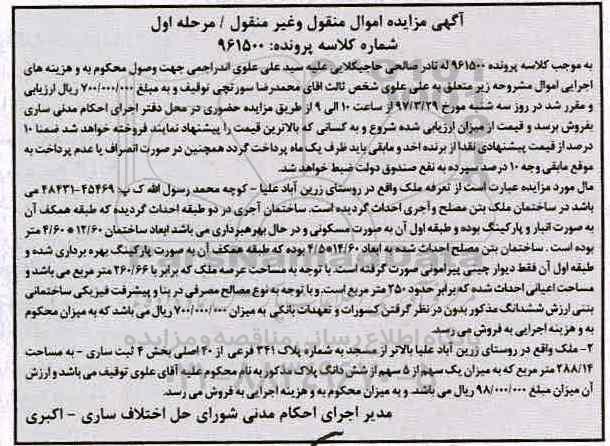 آگهی مزایده اموال منقول وغیر منقول / مرحله اول
شماره کلاسه پرونده: ۹۶۱۵۰۰
به موجب کلاسه پرونده ۹۶۱۵۰۰ له نادر صالحی حاجیکلایی علیه سید علی علوی اندراجمی جهت وصول محکوم به و هزینه های
اجرایی اموال مشروحه زیر متعلق به علی علوی شخص ثالث اقای محمدرضا سورتچی توقیف و به مبلغ ۷۰۰/۰۰۰/۰۰۰ ریال ارزیابی
و مقرر شد در روز سه شنبه مورخ ۹۷/۳/۲۹ از ساعت ۱۰ الی ۹ از طریق مزایده حضوری در محل دفتر اجرای احکام مدنی ساری
بفروش برسد و قیمت از میزان ارزیابی شده شروع و به کسانی که بالاترین قیمت را پیشنهاد نمایند فروخته خواهد شد ضمنا ۱۰
درصد از قیمت پیشنهادی نقدا از برنده اخذ و مابقی باید ظرف یک ماه پرداخت گردد همچنین در صورت انصراف یا عدم پرداخت به
موقع مابقی وجه ۱۰ درصد سپرده به نفع صندوق دولت ضبط خواهد شد.
مال مورد مزایده عبارت است از تعرفه ملک واقع در روستای زرین آباد علیا - کوچه محمد رسول الله ک پ: ۴۵۴۶۹-۴۸۴۳۱ می
باشد در ساختمان ملک بتن مصلح و آجری احداث گردیده است. ساختمان آجری در دو طبقه احداث گردیده که طبقه همکف آن
به صورت انبار و پارکینگ بوده و طبقه اول آن به صورت مسکونی و در حال بهرهبرداری می باشد ابعاد ساختمان ۱۲/۶۰*۴/۶۰ متر
بوده است . ساختمان بتن مصلح احداث شده به ابعاد ۱۴/۶۰*۴/۵ بوده که طبقه همکف آن به صورت پارکینگ بهره برداری شده و
طبقه اول آن فقط دیوار چینی پیرامونی صورت گرفته است. با توجه به مساحت عرصه ملک که برابر با ۲۶۰/۶۶ متر مربع می باشد و
مساحت اعیانی احداث شده که برابر حدود ۲۵۰ متر مربع است. و با توجه به نوع مصالح مصرفی در بنا و پیشرفت فیزیکی ساختمانی
بتنی ارزش ششدانگ مذکور بدون در نظر گرفتن کسورات و تعهدات بانکی به میزان ۷۰۰/۰۰۰/۰۰۰ ریال می باشد که به میزان محکوم
به و هزینه اجرایی به فروش می رسد.
۲- ملک واقع در روستای زرین آباد علیا بالاتر از مسجد به شماره پلاک ۳۴۱ فرعی از ۴۰ اصلی بخش ۴ ثبت ساری - به مساحت
۲۸۸/۱۴ متر مربع که به میزان یک سهم از ۵ سهم از شش دانگ پلاک مذکور به نام محکوم علیه آقای علوی توقیف می باشد و ارزش
آن میزان مبلغ ۹۸/۰۰۰/۰۰۰ ریال می باشد. و به میزان محکوم به و هزینه اجرایی به فروش می رسد.
مدیر اجرای احکام مدنی شورای حل اختلاف ساری - اکبری